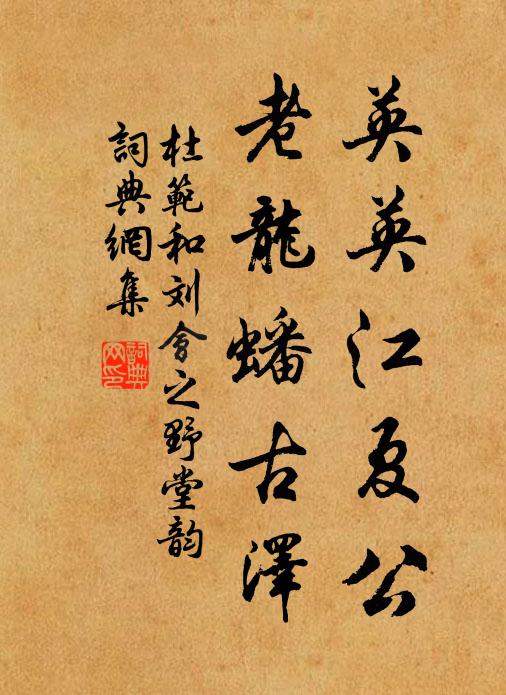 英英江夏公
老龍蟠古澤
杜範和刘會之野堂韵
詞典網集
詞典網印